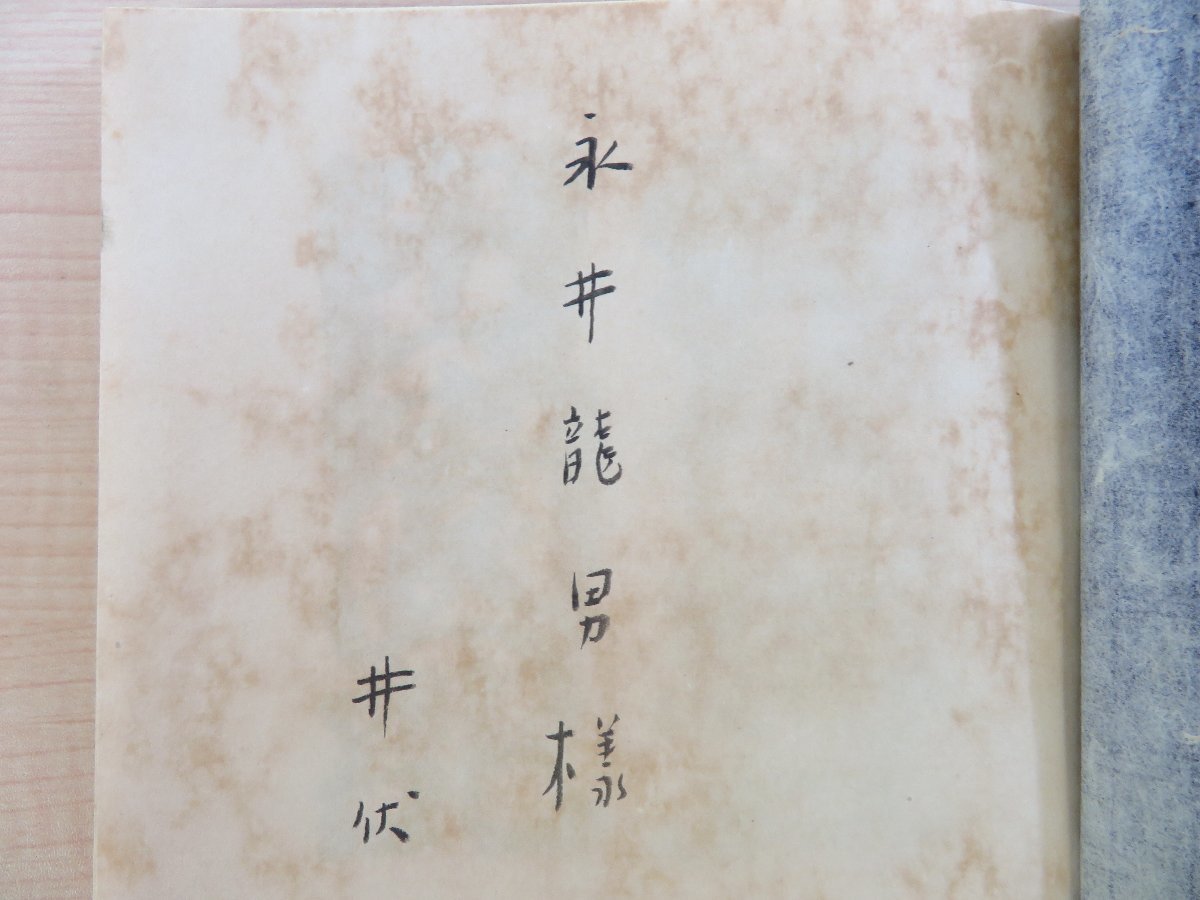 永井龍男様
井伏